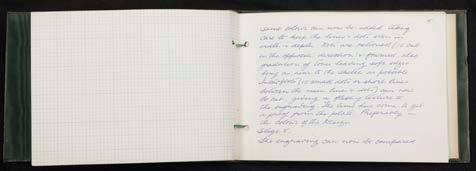 Some colour can now be added taking
care to keep the lines & dots even in
width & depth. Dots are reversed (i.e. cut
in the opposite direction) & formed, also
gradation of tones leaving soft edges
being as near to the as possible
(i.e. small dots or short lines
between the main lines & dots) can now
be cut giving a texture to
the engraving. The time has come to get
a proof from the plate. Preferably in
the colour of the design.
Stage 5.
The engraving can now be compared